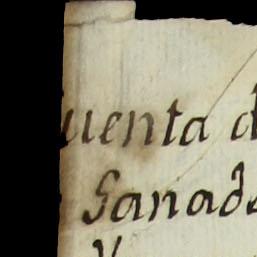 uenta d
Sanade